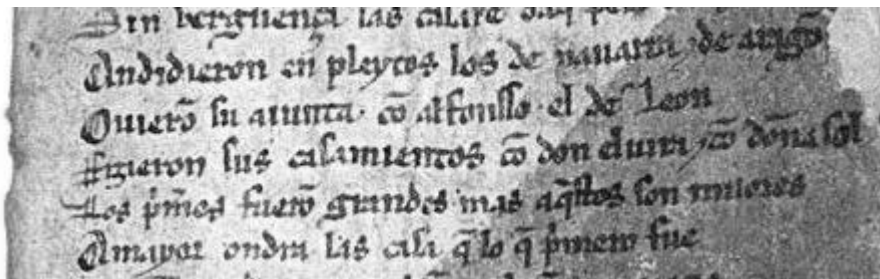 Sin verguença las casare
Andidieron en pleytos los de nauarra ⁊ de aragõ
Ouierõ su aiunta cõ alfonsso el de Leon
ffizieron sus casamientos cõ don eluira ⁊ cõ doña sol
Los p̃meros fuerõ grandes mas aq̃stos son miiores
A mayor ondra las casa q̃ lo q̃ p̃mero fue